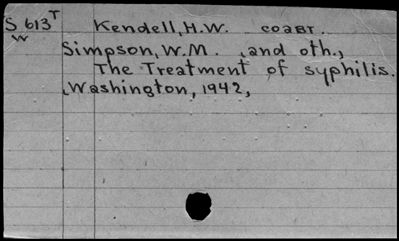 S 613 T Kendell, H.W. соавт.
W
Simpson, W.M. and oth.,
The Treatment of syphilis.
Washington, 1942,